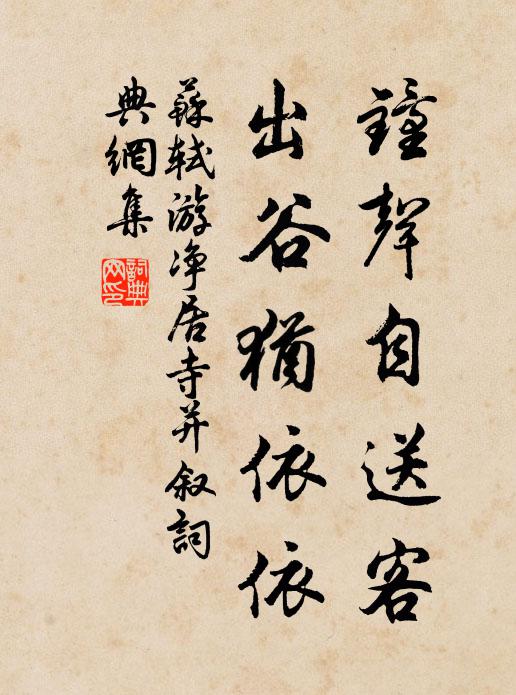 鐘聲自送客
出谷猶依依
蘇軾游净居寺并叙詞
典網集
詞典網印